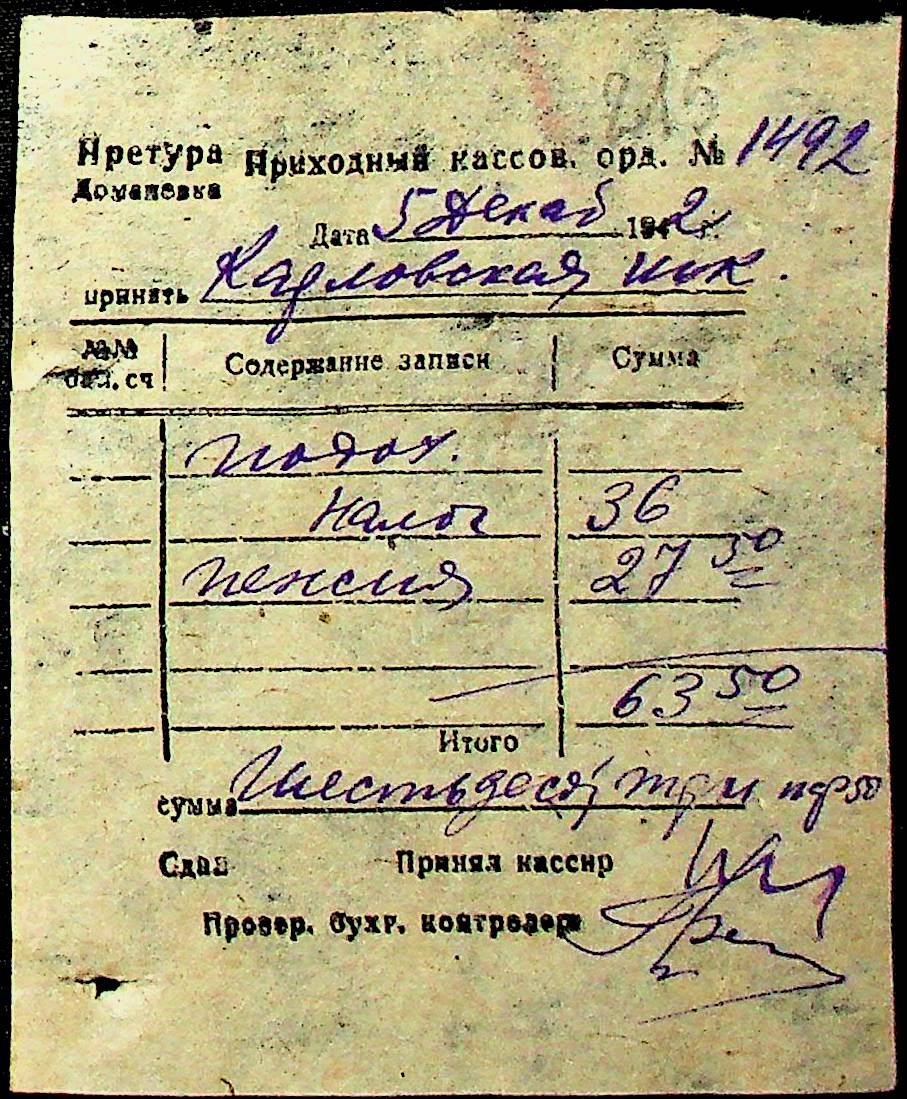 215
Претура Приходный кассов. орд. № 1492
Доманевка
Дата 5 Декаб 1942 г.
принять Кадловская шк.
№№ бал. сч Содержание записи Сумма
Подох.
налог 36
Пенсия 27 50
63 50
Итого
сумма Шестьдесят три 50
Сдал Принял кассир
Провер. бухг. контролер